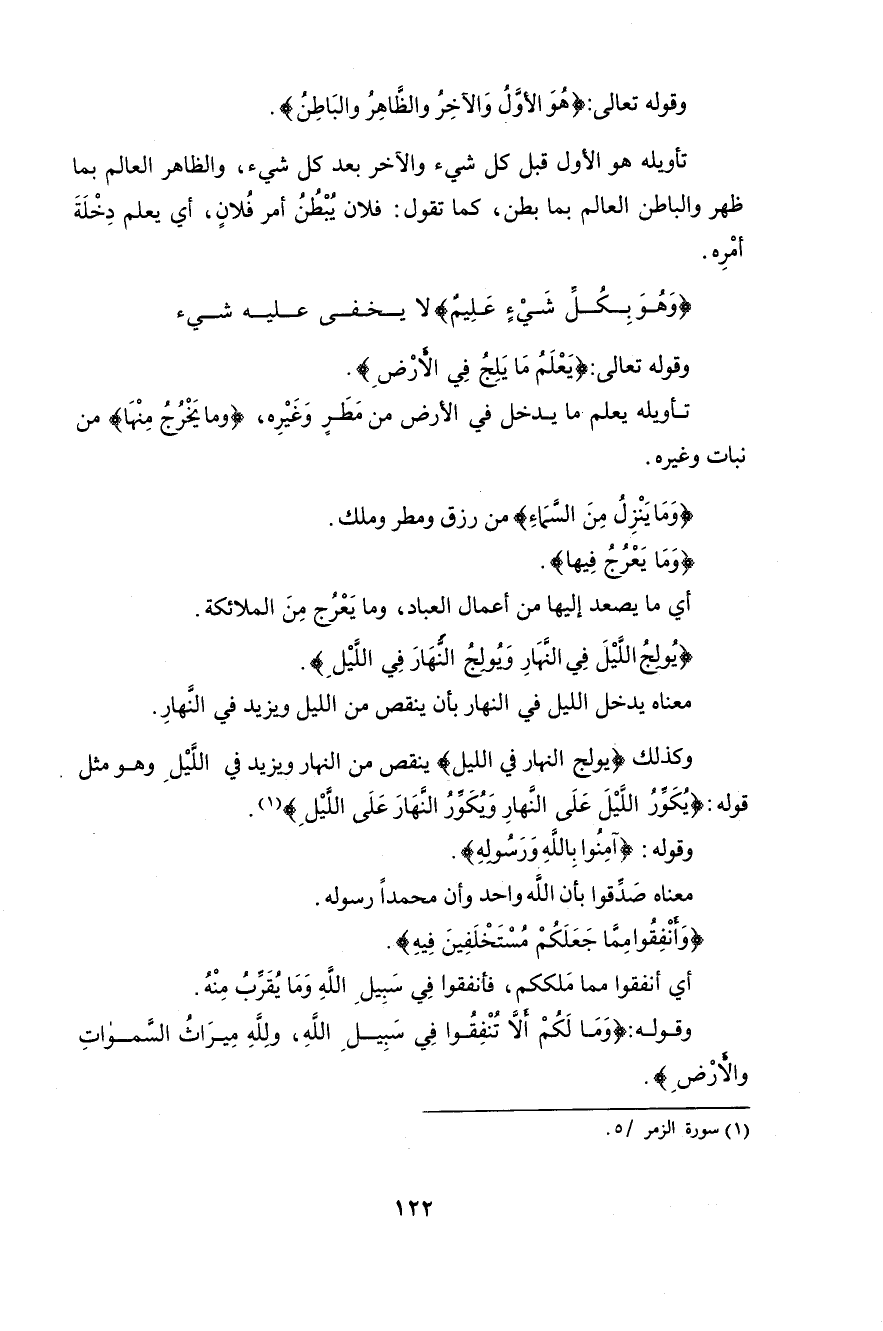 وقوله تعالى:﴿هُوَ الأوَّلُ وَالآخِرُ والظَّاهِرُ والبَاطِنُ﴾.
تأويله هو الأول قبل كل شيء والآخر بعد كل شيء، والظاهر العالم بما
ظهر والباطن العالم بما بطن، كما تقول: فلان يُبْطُنُ أمر فُلانٍ، أي يعلم دِخْلَةَ
أمْرِه.
﴿وَهُوَ بِكُلِّ شَيْءٍ عَلِيمٌ﴾ لا يخفى عليه شيء
وقوله تعالى:﴿يَعْلَمُ مَا يَلِجُ فِي الأَرْضِ﴾.
تأويله يعلم ما يدخل في الأرض من مَطَرٍ وَغَيْرِه، ﴿وما يَخْرُجُ مِنْهَا﴾ من
نبات وغيره.
﴿وَمَا يَنْزِلُ مِنَ السَّمَاءِ﴾ من رزق ومطر وملك.
﴿وَمَا يَعْرُجُ فِيها﴾.
أي ما يصعد إليها من أعمال العباد، وما يَعْرُج مِنَ الملائكة.
﴿يُولِجُ اللَّيْلَ فِي النَّهَارِ وَيُولِجُ النَّهَارَ فِي اللَّيْلِ﴾.
معناه يدخل الليل في النهار بأن ينقص من الليل ويزيد في النَّهارِ.
وكذلك ﴿يولج النهار في الليل﴾ ينقص من النهار ويزيد في اللَّيْلِ وهو مثل
قوله:﴿يُكَوِّرُ اللَّيْلَ عَلَى النَّهارِ وَيُكَوِّرُ النَّهَارَ عَلَى اللَّيْلِ﴾(١).
وقوله: ﴿آمِنُوا بِاللَّهِ وَرَسُولِهِ﴾.
معناه صَدِّقوا بأن اللَّه واحد وأن محمداً رسوله.
﴿وَأَنْفِقُوا مِمَّا جَعَلَكُمْ مُسْتَخْلَفِينَ فِيهِ﴾.
أي أنفقوا مما مَلككم، فأنفقوا فِي سَبِيلِ اللَّهِ وَمَا يُقَرِّبُ مِنْهُ.
وقوله:﴿وَمَا لَكُمْ أَلَّا تُنْفِقُوا فِي سَبِيلِ اللَّهِ، ولِلَّهِ مِيرَاثُ السَّموٰاتِ
والأَرْضِ﴾.
(١) سورة الزمر /٥.
١٢٢